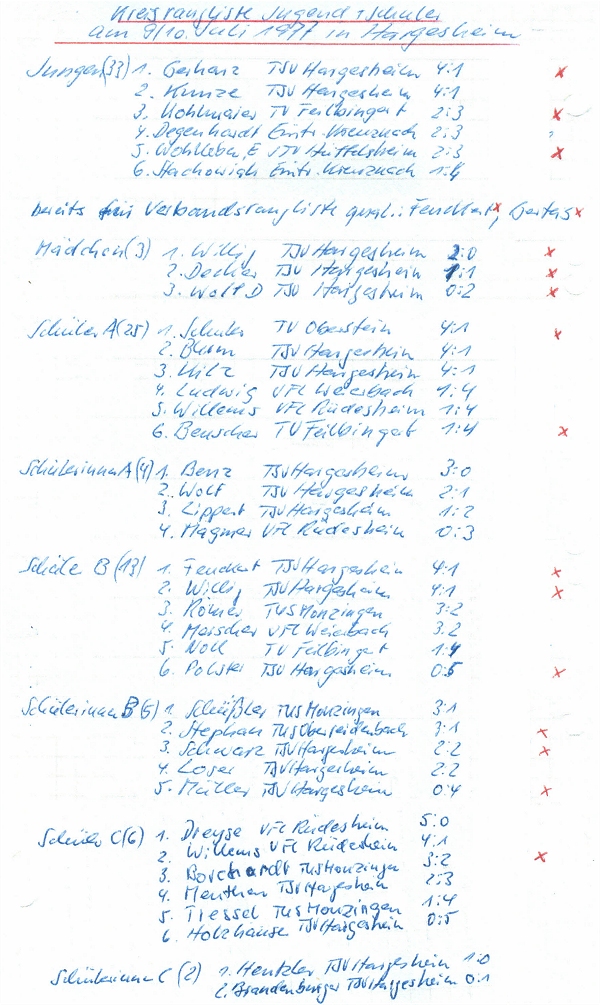 Kreisrangliste Jugend + Schüler
am 9/10. Juli 1977 in Hargesheim
Jungen (33) 1. Gerharz TSV Hargesheim 4:1 x
2. Kunze TSV Hargesheim 4:1
3. Kohlmaier TV Feilbingert 2:3 x
4. Degenhardt Eintr. Kreuznach 2:3
5. Wohlleben, E STV Hüffelsheim 2:3 x
6. Stachowiak Eintr. Kreuznach 1:4
bereits für Verbandsrangliste qual.: Feuckert x, Gertas x
Mädchen (3) 1. Willig TSV Hargesheim 2:0 x
2. Decker TSV Hargesheim 1:1 x
3. Wolf D TSV Hargesheim 0:2 x
Schüler A (25) 1. Schuler TV Oberstein 4:1 x
2. Blum TSV Hargesheim 4:1
3. Hilz TSV Hargesheim 4:1
4. Ludwig VFL Weierbach 1:4
5. Willems VFL Rüdesheim 1:4
6. Beuscher TV Feilbingert 1:4 x
Schülerinnen A (4) 1. Benz TSV Hargesheim 3:0
2. Wolf TSV Hargesheim 2:1
3. Lippert TSV Hargesheim 1:2
4. Magmer VFL Rüdesheim 0:3
Schüler B (13) 1. Feuckert TSV Hargesheim 4:1 x
2. Willig TSV Hargesheim 4:1 x
3. Römer TUS Monzingen 3:2
4. Morscher VFL Weierbach 3:2
5. Noll TV Feilbingert 1:4
6. Polster TSV Hargesheim 0:5 x
Schülerinnen B (5) 1. Schäßler TUS Monzingen 3:1
2. Stephan TUS Oberreidenbach 3:1 x
3. Schwarz TSV Hargesheim 2:2 x
4. Loser TSV Hargesheim 2:2
5. Müller TSV Hargesheim 0:4 x
Schüler C (6) 1. Dreyse VFL Rüdesheim 5:0
2. Willems VFL Rüdesheim 4:1
3. Borchardt TUS Monzingen 3:2 x
4. Menthen TSV Hargesheim 2:3
5. Tressel TUS Monzingen 1:4
6. Holzhause TSV Hargesheim 0:5
Schülerinnen C (2) 1. Hentzler TSV Hargesheim 1:0
2. Brandenburger TSV Hargesheim 0:1